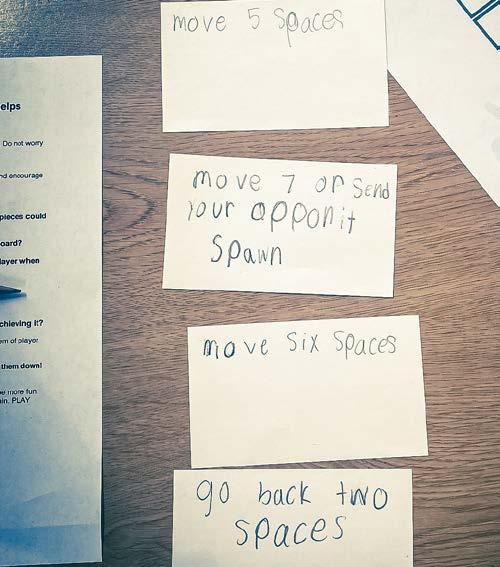 elps
Do not worry
nd encourage
pieces could
oard?
layer when
chieving it?
em of player
them down!
e more fun
in. PLAY
move 5 spaces
move 7 or send
your apponit
spawn
move six spaces
go back two
spaces